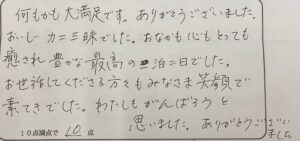 何もかも大満足です。ありがとうございました。
おいしいカニ三昧でした。おなかも心もとっても
癒され豊かな最高の一泊二日でした。
お世話してくださる方々もみなさま笑顔で
素てきでした。わたしもがんばろうと
思いました。ありがとうござい
ました
10点満点で 10 点